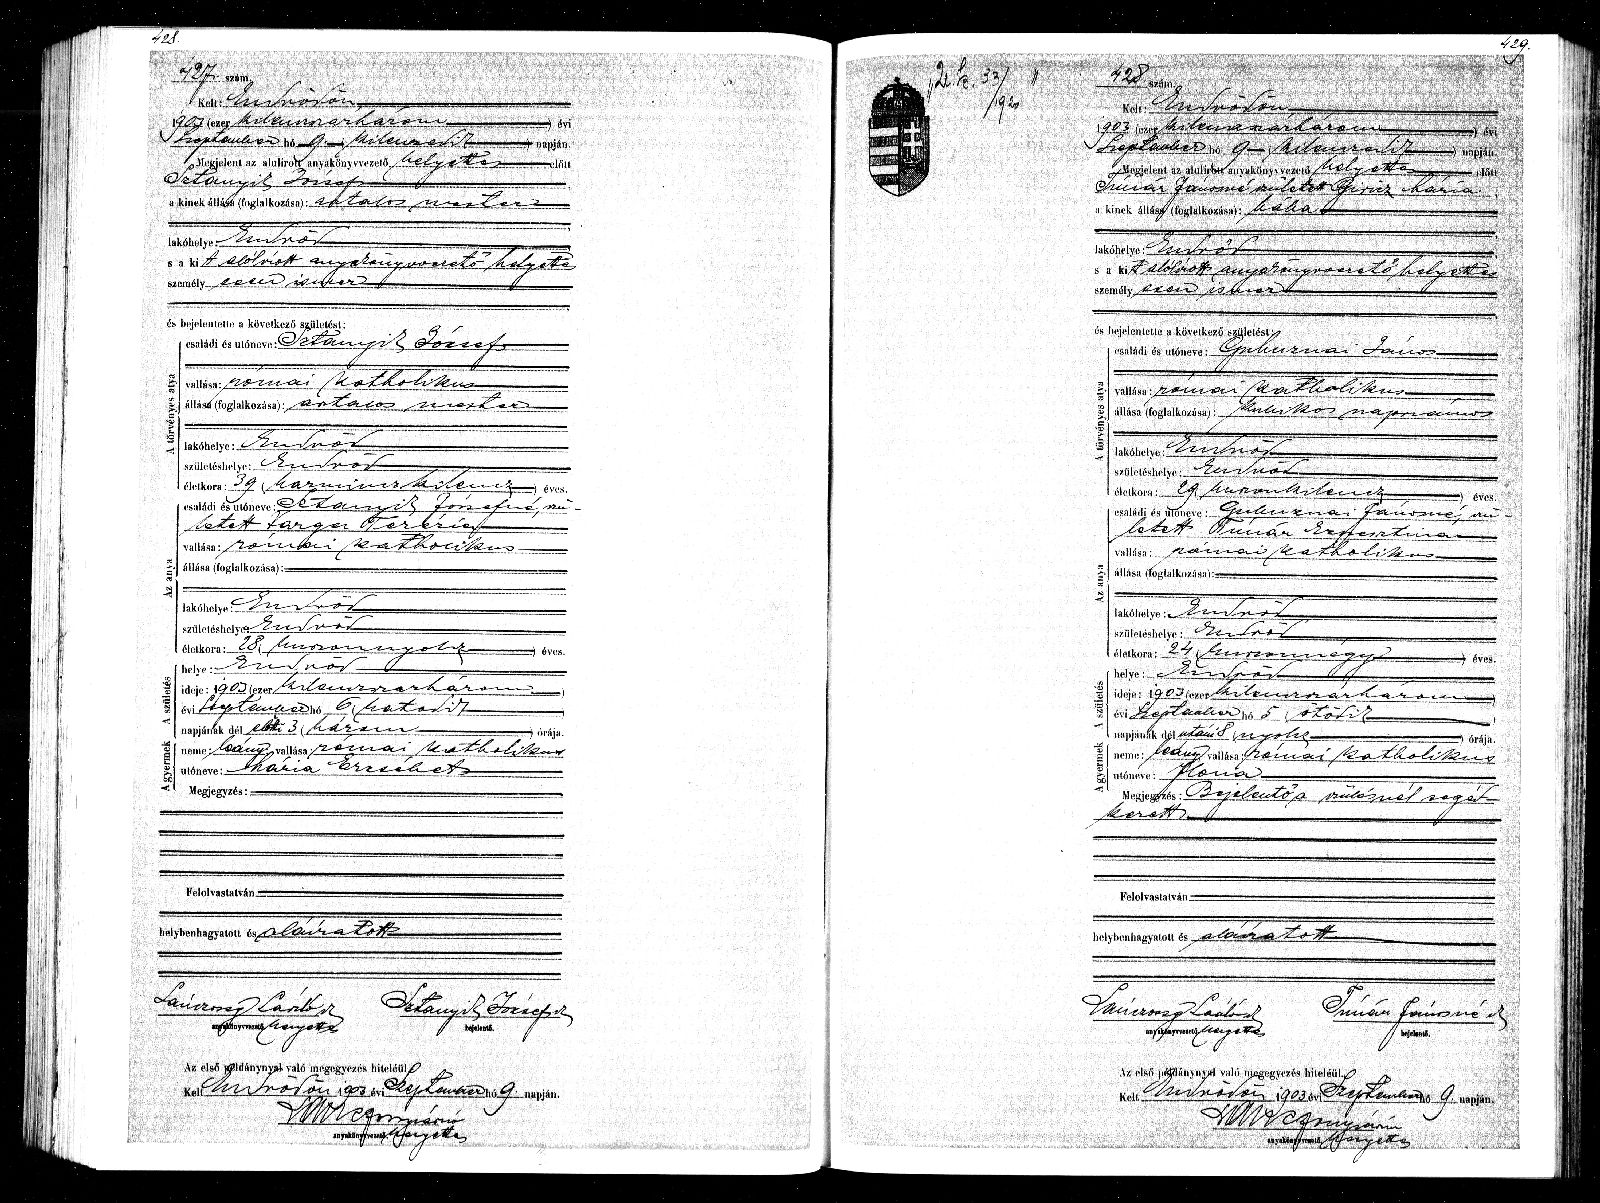 428.
427 szám.
Kelt: Endrődön
1903 (ezer kilenczszázhárom) évi
Szeptember hó 9 (kilenczedik) napján.
Megjelent az alulirott anyakönyvvezető helyettes előtt
Sztanyik József
a kinek állása (foglalkozása): asztalos mester
lakóhelye: Endrőd
s a kit alólirott anyakönyvvezető helyettes
személyesen ismer
és bejelentette a következő születést:
A törvényes atya
családi és utóneve: Sztanyik József
vallása: római katholikus
állása (foglalkozása): asztalos mester
lakóhelye: Endrőd
születéshelye: Endrőd
életkora: 39 (harminczkilencz) éves.
Az anya
családi és utóneve: Sztanyik Józsefné, szü-
letett Varga Terézia
vallása: római katholikus
állása (foglalkozása):
lakóhelye: Endrőd
születéshelye: Endrőd
életkora: 28 (huszonnyolcz) éves.
A születés
helye: Endrőd
ideje: 1903 (ezer kilenczszázhárom)
évi Szeptember hó 6 (hatodik)
napjának dél előtti 3 (három) órája.
A gyermek
neme: leány, vallása: római katholikus
utóneve: Mária Erzsébet
Megjegyzés:
Felolvastatván
helybenhagyatott és aláiratott
László k
anyakönyvvezető helyettes
Sztanyik József k
bejelentő.
Az első példánynyal való megegyezés hiteléül.
Kelt Endrődön 1903 évi Szeptember hó 9 napján.
anyakönyvvezető helyettes
429.
33/
192
428 szám.
Kelt: Endrődön
1903 (ezer kilenczszázhárom) évi
Szeptember hó 9 (kilenczedik) napján.
Megjelent az alulirott anyakönyvvezető helyettes előtt
Tímár Jánosné született Giricz Mária
a kinek állása (foglalkozása): bába
lakóhelye: Endrőd
s a kit alólirott anyakönyvvezető helyettes
személyesen ismer
és bejelentette a következő születést:
A törvényes atya
családi és utóneve: Gubuznai János
vallása: római katholikus
állása (foglalkozása): kubikos napszámos
lakóhelye: Endrőd
születéshelye: Endrőd
életkora: 29 (huszonkilencz) éves.
Az anya
családi és utóneve: Gubuznai Jánosné, szü-
letett Tímár Ernesztina
vallása: római katholikus
állása (foglalkozása):
lakóhelye: Endrőd
születéshelye: Endrőd
életkora: 24 (huszonnégy) éves.
A születés
helye: Endrőd
ideje: 1903 (ezer kilenczszázhárom)
évi Szeptember hó 5 (ötödik)
napjának dél utáni 8 (nyolcz) órája.
A gyermek
neme: leány, vallása: római katholikus
utóneve: Ilona
Megjegyzés: Bejelentő a szülésnél segéd-
kezett
Felolvastatván
helybenhagyatott és aláiratott
László k
anyakönyvvezető helyettes
Tímár Jánosné k
bejelentő.
Az első példánynyal való megegyezés hiteléül.
Kelt Endrődön 1903 évi Szeptember hó 9 napján.
anyakönyvvezető helyettes